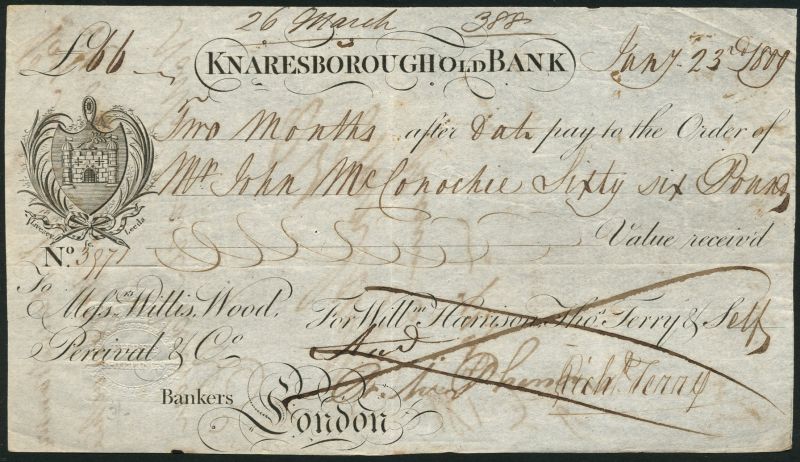 26 March 388
£66 KNARESBOROUGH OLD BANK Jany. 23rd 1809
Two Months after date pay to the Order of
Mr. John McConochie Sixty six Pounds
Leeds
No. 3971 Value receiv'd
To
Messrs. Willis, Wood, For Willm. Harrison, Thos. Terry & Self
Percival & Co. And
Richd. Terry
Bankers
London